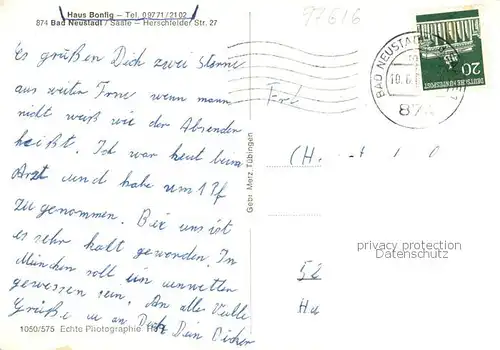 Haus Bonfig – Tel. 09771/2102
874 Bad Neustadt / Saale – Herschfelder Str. 27
97616
Es grüßen Dich zwei Sterne
aus weiter Ferne wenn man
nicht weiß wie der Absender
heißt. Ich war heut beim
Arzt und habe um 1 Pf
zugenommen. Bei uns ist
es sehr kalt geworden. In
München soll ein
gewesen sein. An alle viele
Grüße u an Dich Dein
1050/575 Echte Photographie
Gebr. Metz, Tübingen
BAD NEUSTADT
10.6.
874
DEUTSCHE BUNDESPOST
20
Frl
(H
52
Ha
privacy protection
Datenschutz